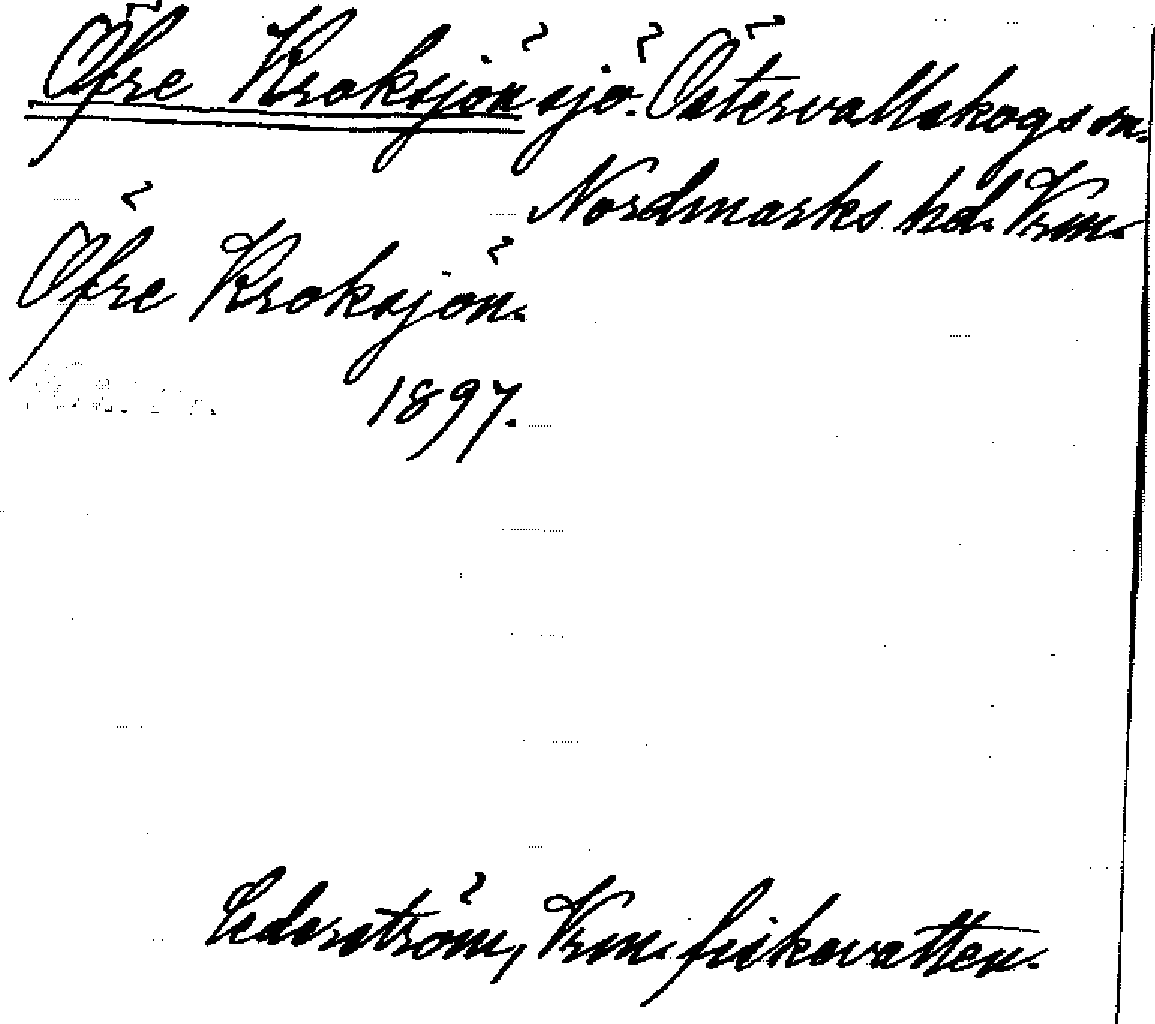 Öfre Kroksjön sjö. Östervallskogs sn.
Nordmarks hd. Vrm.
Öfre Kroksjön.
1897.
Cederström, Vrm. fiskevatten.